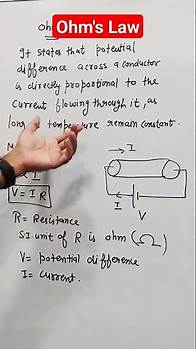 Ohm's Law
Oh
It states that potential
difference across a conductor
is directly proportional to the
current flowing through it, as
long temperature remain constant.
→ I
V = I R
I
V
R = Resistance
SI unit of R is ohm (Ω)
V = potential difference
I = current.